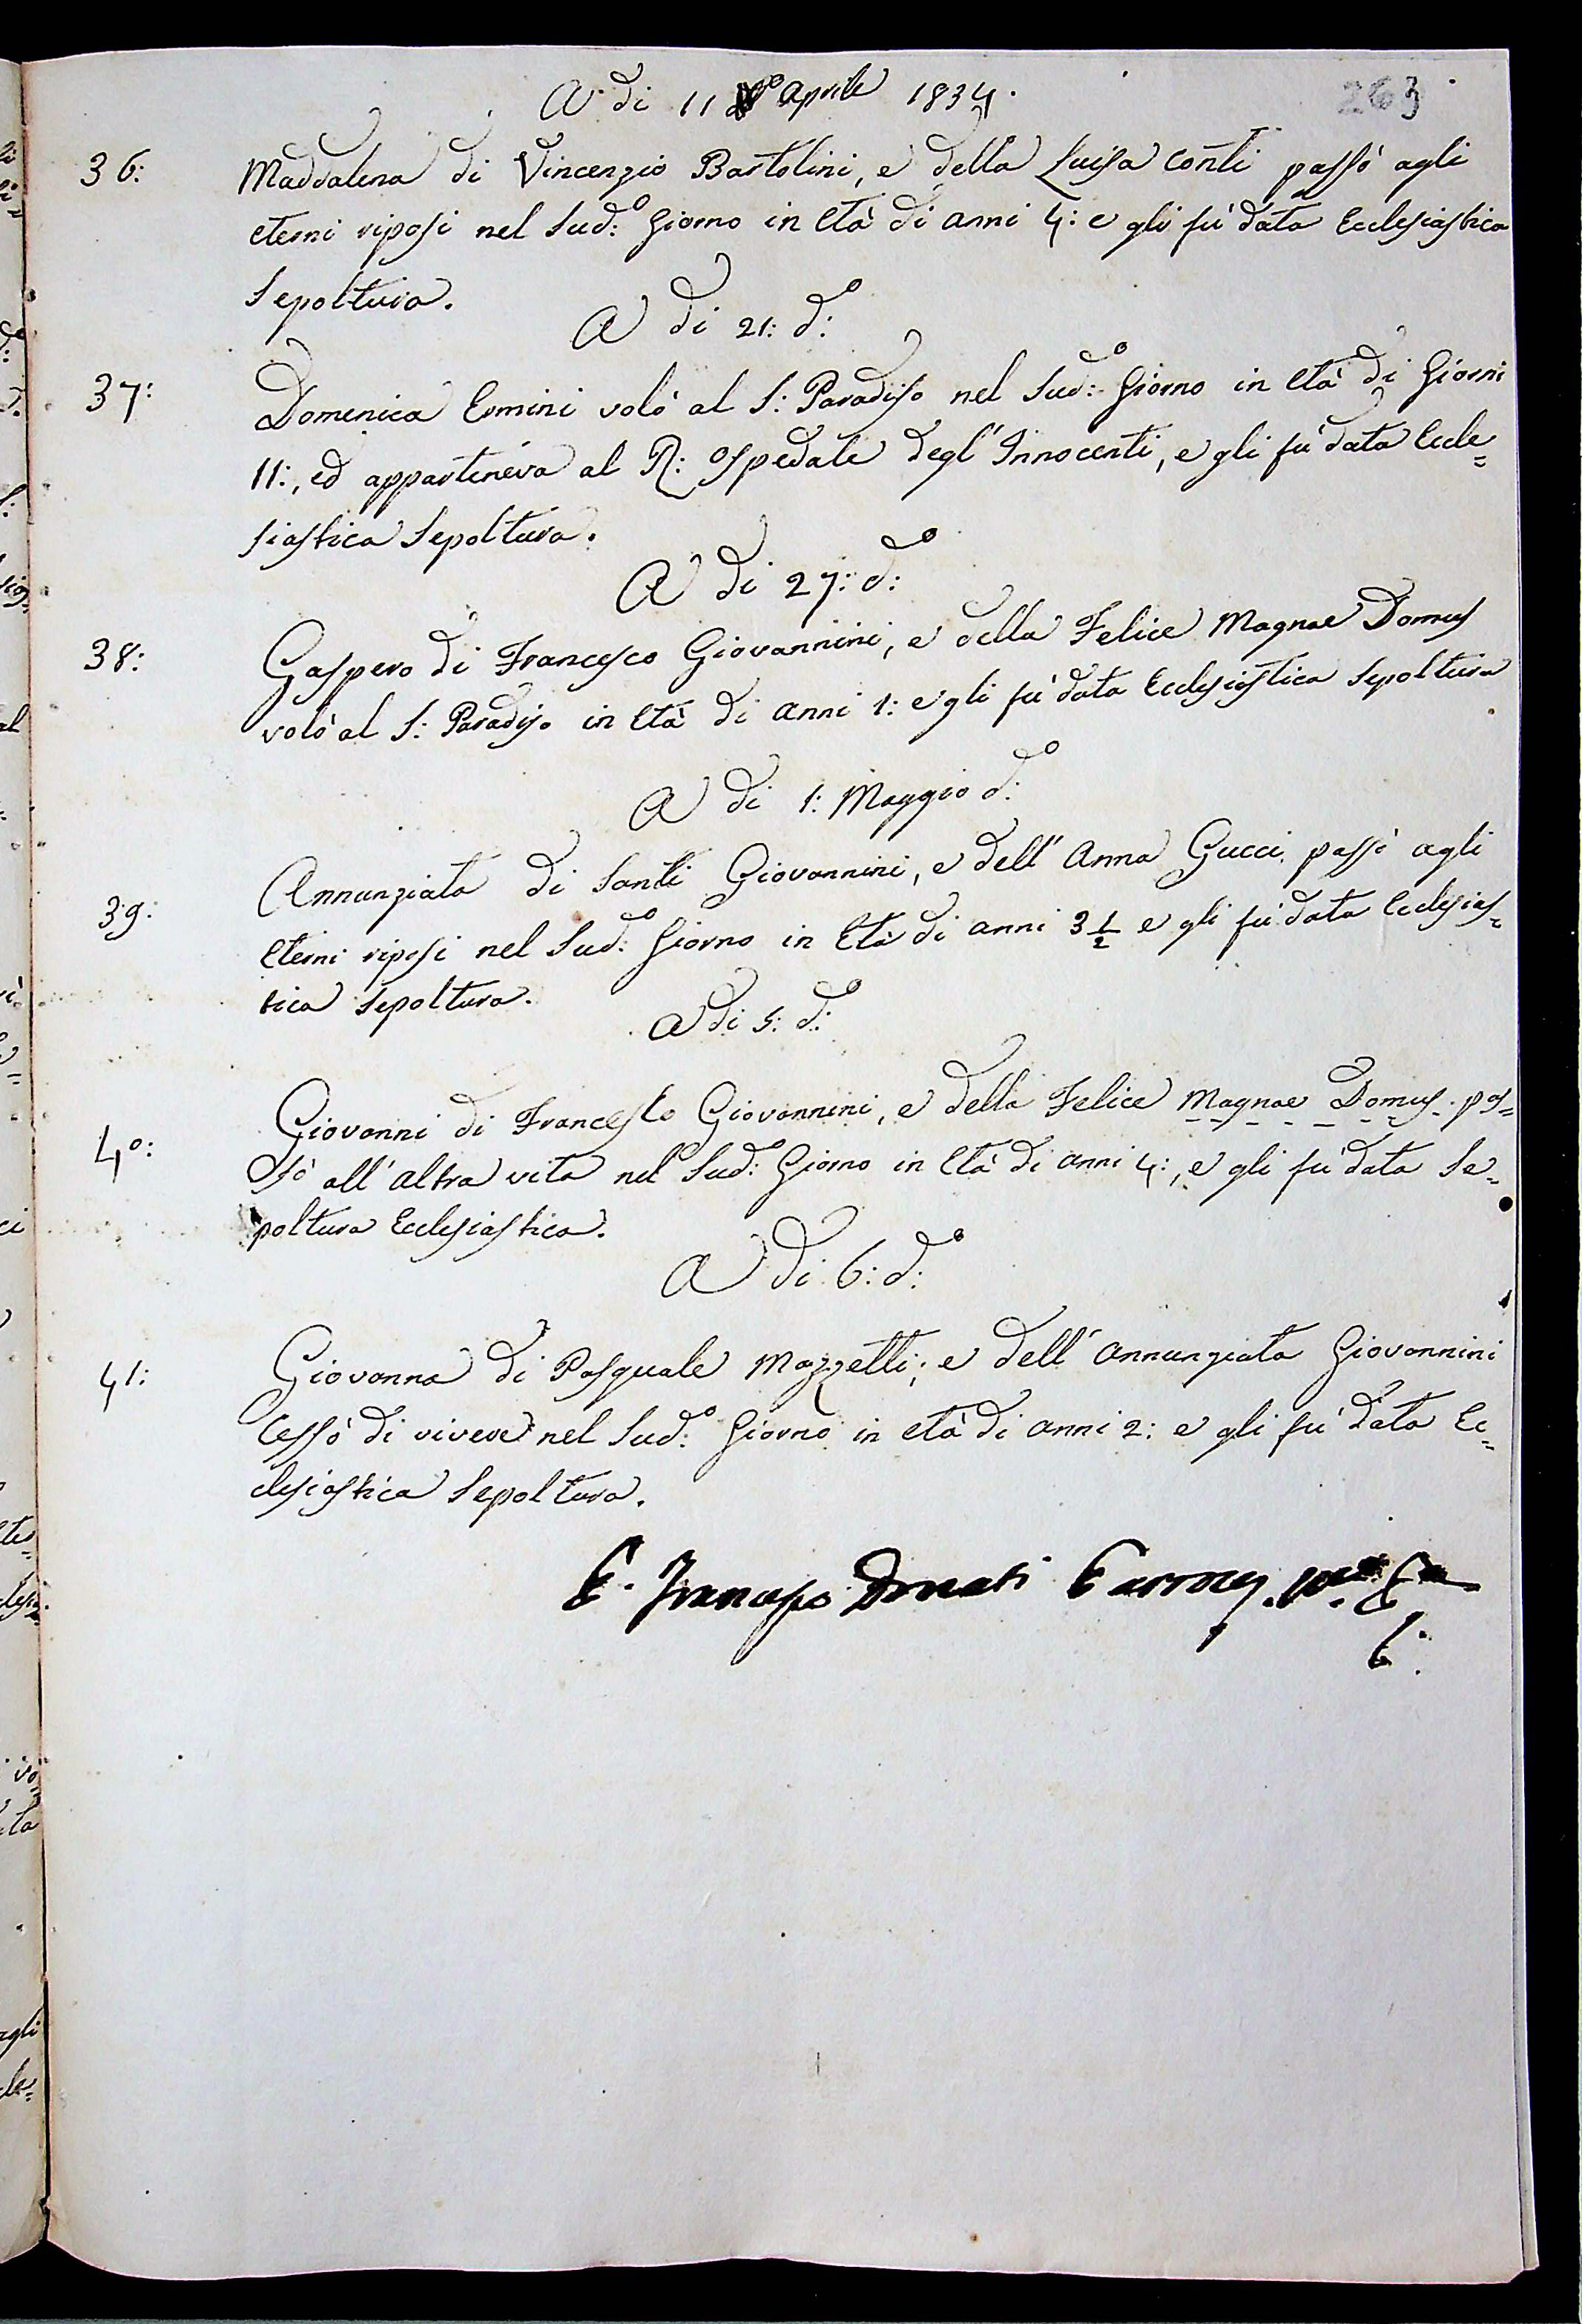 A di 11 Aprile 1834.
263
36: Maddalena di Vincenzio Bartolini, e della Luisa Conti passò agli
eterni riposi nel Sud:º Giorno in Età di anni 4: e gli fù data Ecclesiastica
Sepoltura.
A di 21: d:º
37: Domenica Ermini volò al S: Paradiso nel Sud:º Giorno in Età di Giorni
11:, ed apparteneva al R: Ospedale degl' Innocenti, e gli fù data Eccle=
siastica Sepoltura.
A di 27: d:º
38: Gaspero di Francesco Giovannini, e della Felice Magnae Domus
volò al S: Paradiso in Età di anni 1: e gli fù data Ecclesiastica Sepoltura
A di 1: Maggio d:º
39: Annunziata di Santi Giovannini, e dell' Anna Gucci passò agli
Eterni riposi nel Sud:º Giorno in Età di anni 3 1/2 e gli fù data Ecclesias=
tica Sepoltura.
A di 5: d:º
40: Giovanni di Francesco Giovannini, e della Felice Magnae Domus pas=
sò all' altra vita nel Sud:º Giorno in Età di anni 4:, e gli fù data Se=
poltura Ecclesiastica.
A di 6: d:º
41: Giovanna di Pasquale Mazzetti, e dell' Annunziata Giovannini
Cessò di vivere nel Sud:º Giorno in età di anni 2: e gli fù data Ec=
clesiastica Sepoltura.
P. Francesco Donati